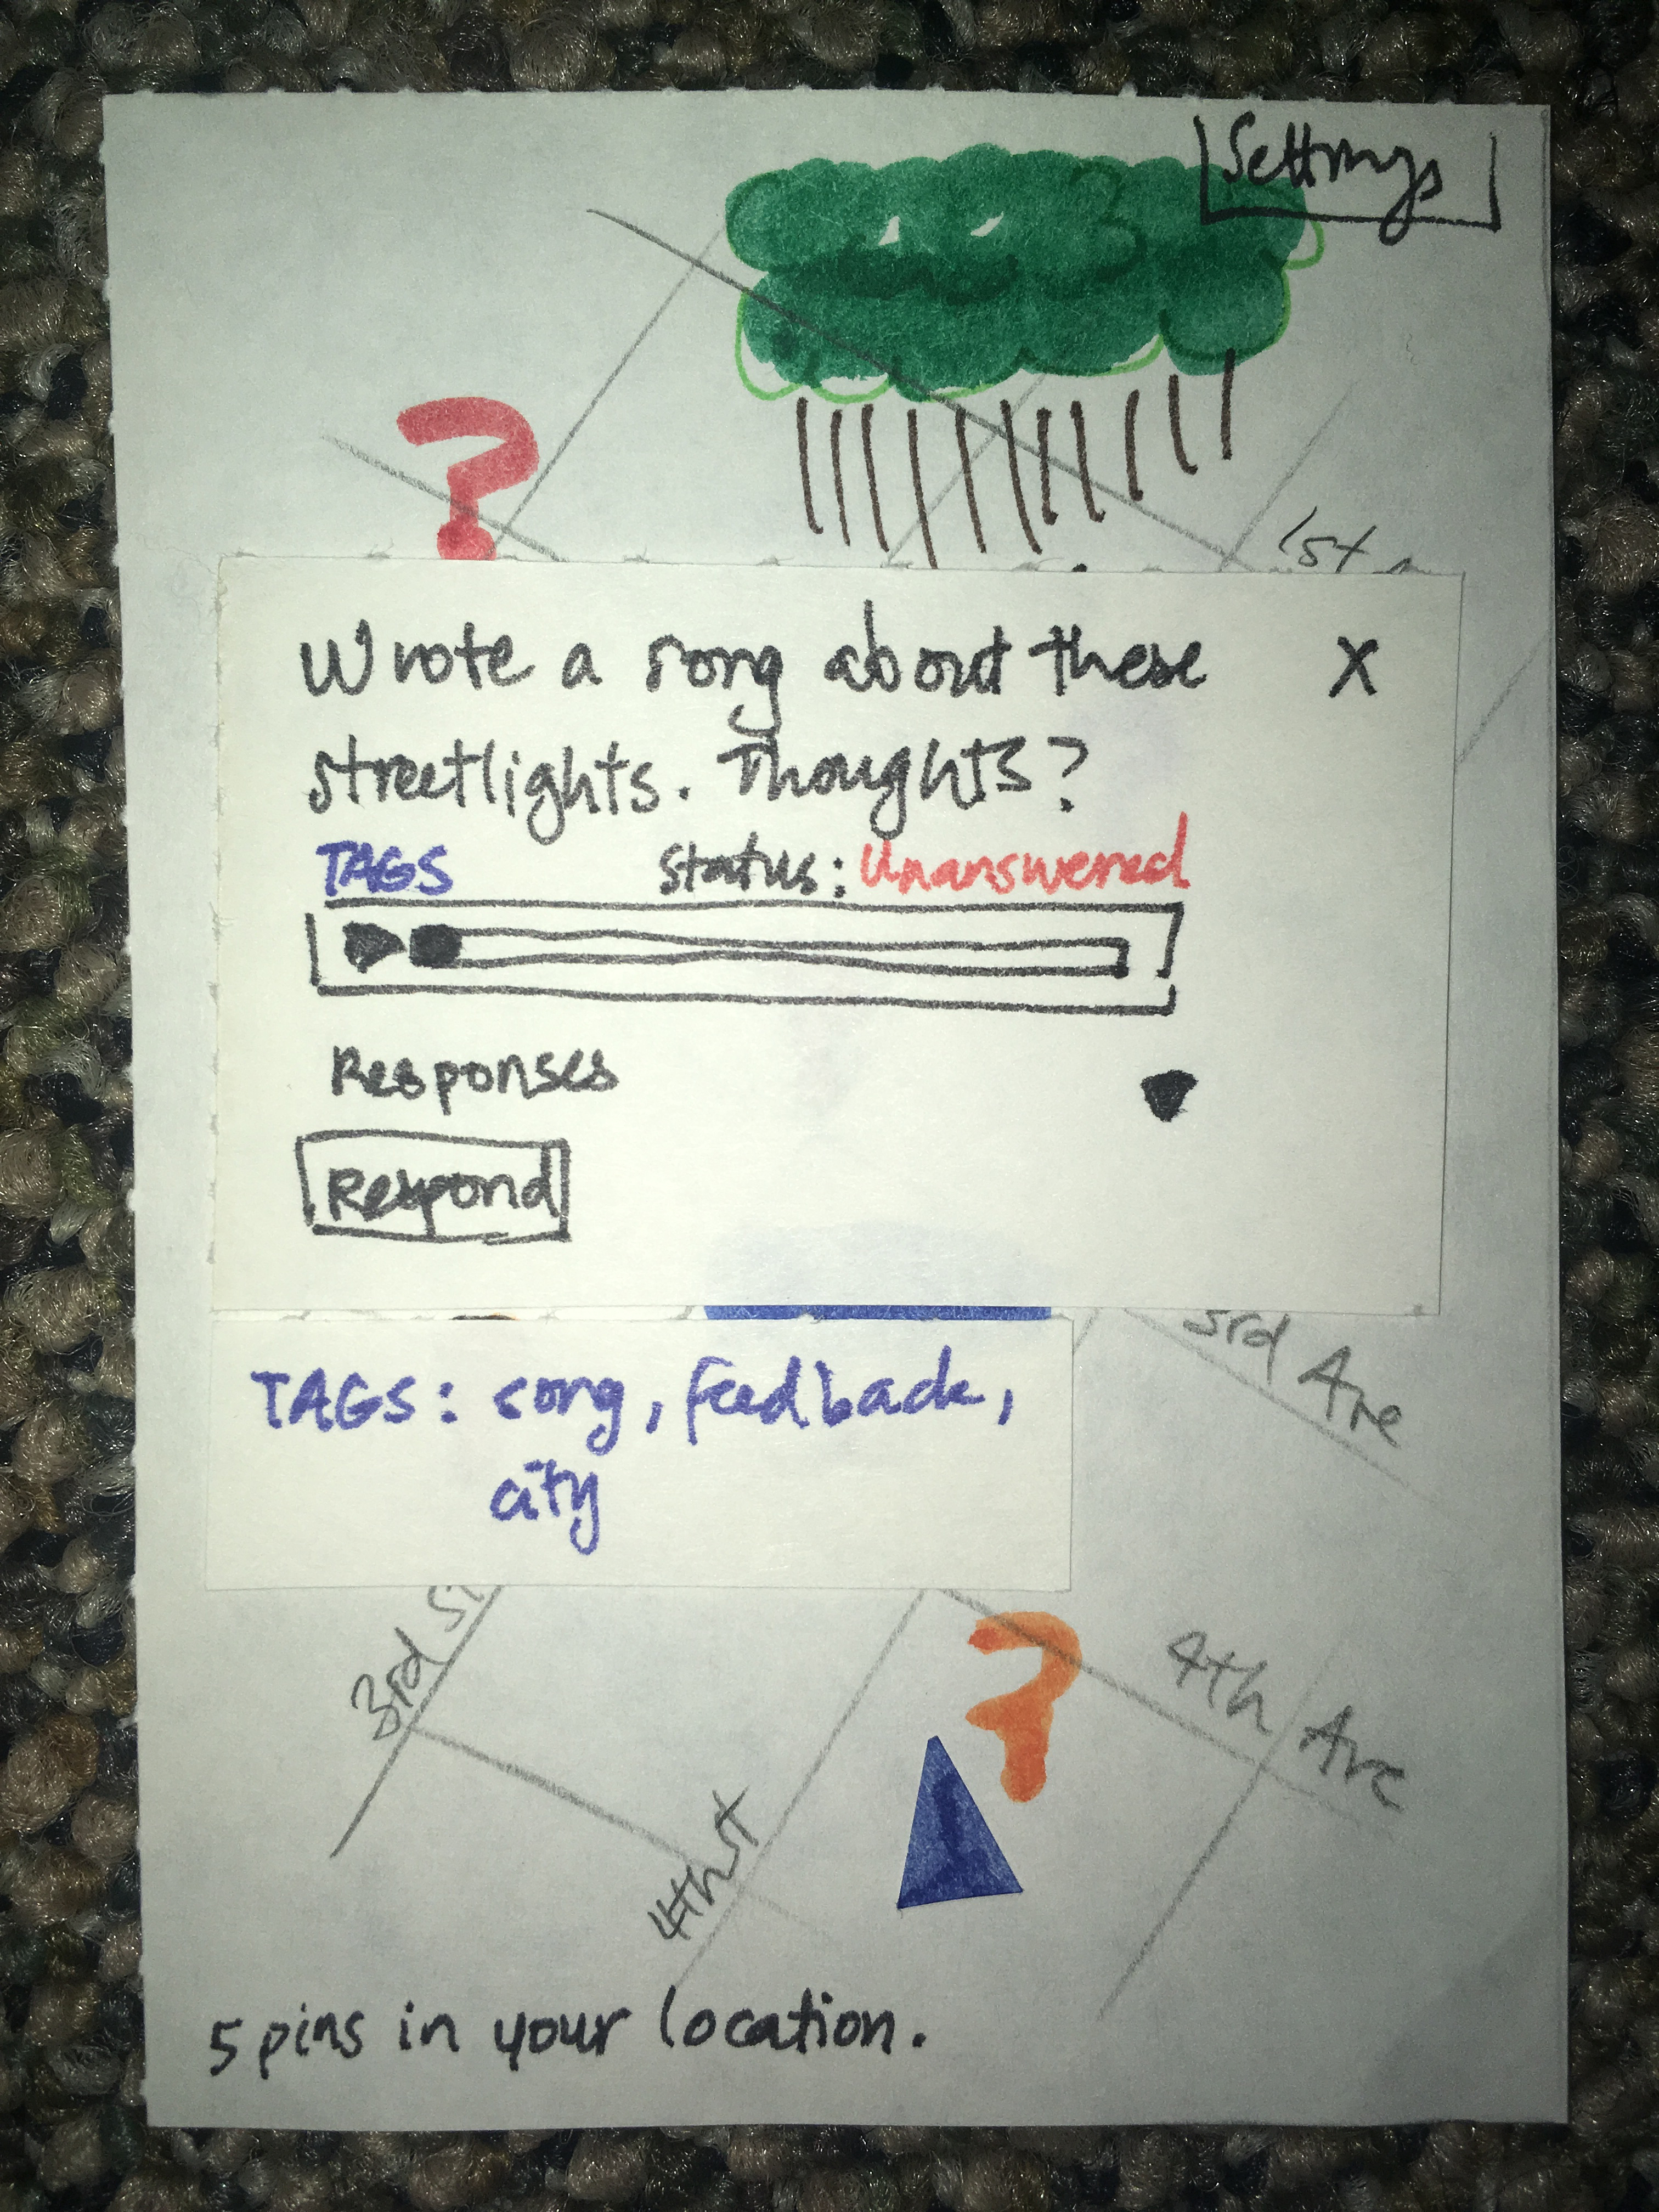 Settings
1st
Wrote a song about these
X
streetlights. Thoughts?
TAGS Status: Unanswered
Responses
Respond
3rd Ave
TAGS: song, feedback,
city
3rd St
4th Ave
4th st
5 pins in your location.